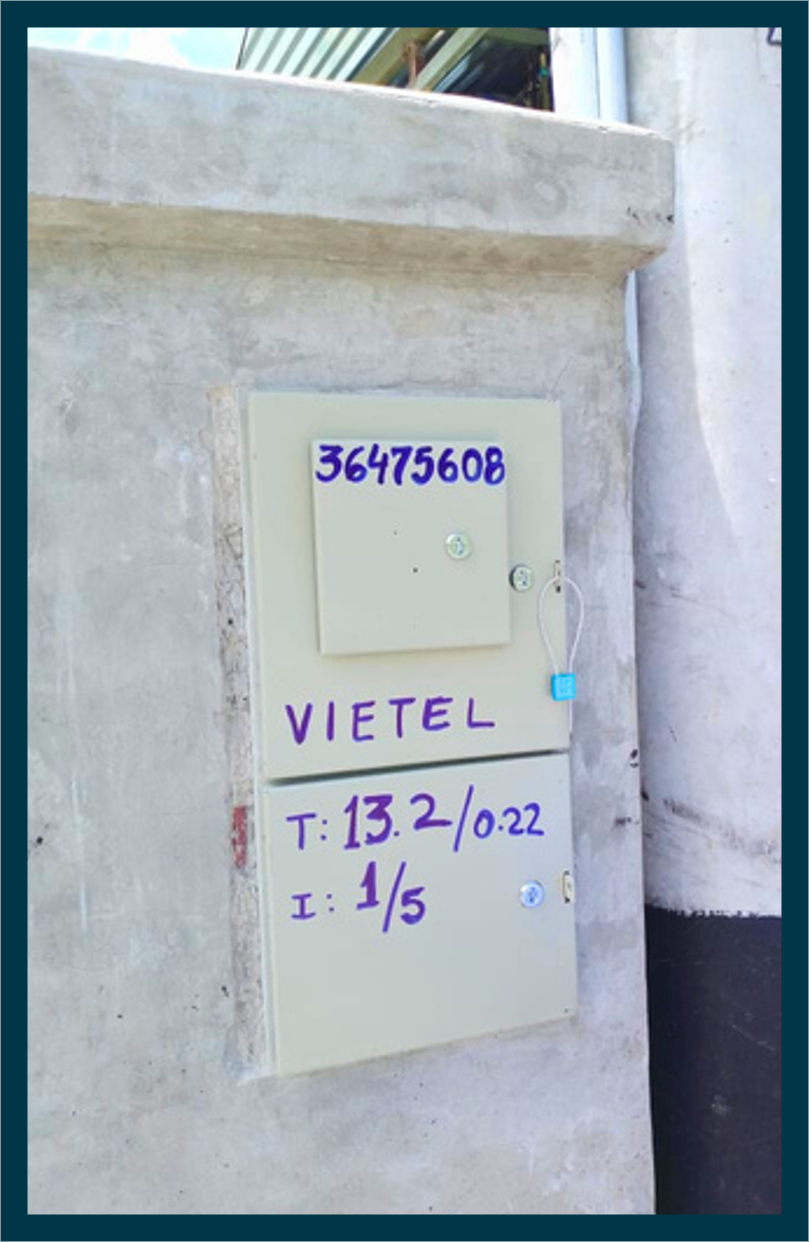 36475608
VIETEL
T: 13.2/0.22
I: 1/5